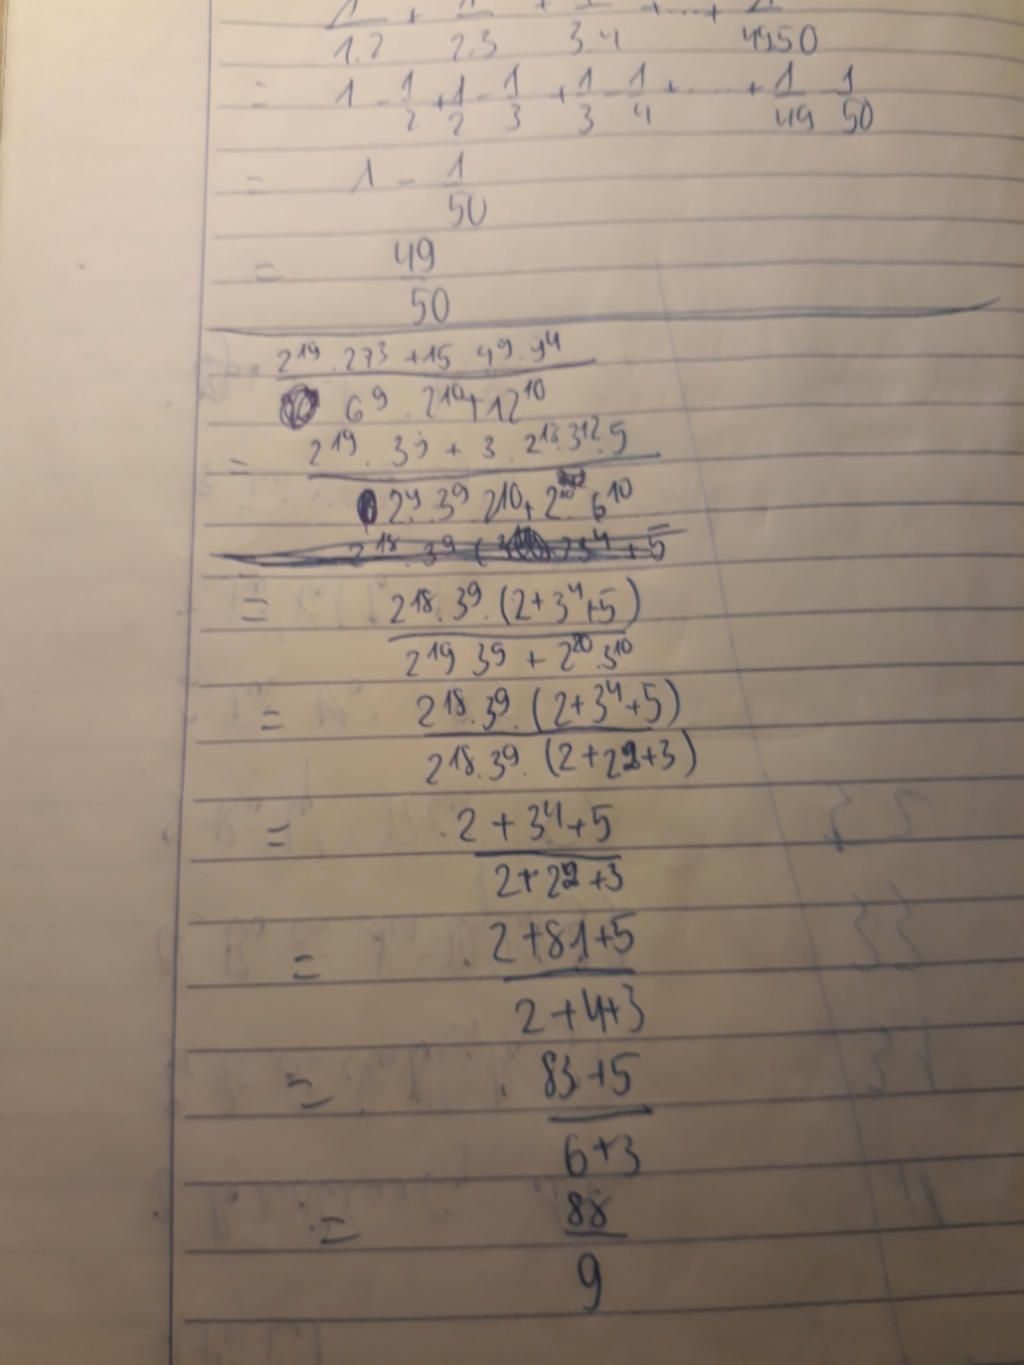 1/1.2 + 1/2.3 + 1/3.4 + .... + 1/49.50
= 1 - 1/2 + 1/2 - 1/3 + 1/3 - 1/4 + .... + 1/49 - 1/50
= 1 - 1/50
= 49/50
2¹⁹ . 27³ + 15 . 4⁹ . 9⁴
6⁹ . 2¹⁰ + 12¹⁰
= 2¹⁹ . 3⁹ + 3 . 2¹⁸ . 3¹² . 5
2⁹ . 3⁹ 2¹⁰ + 2²⁰ 6¹⁰
= 2¹⁸ . 3⁹ . (2 + 3⁴ + 5)
2¹⁹ 3⁹ + 2²⁰ . 3¹⁰
= 2¹⁸ . 3⁹ . (2 + 3⁴ + 5)
2¹⁸ . 3⁹ . (2 + 2² + 3)
= 2 + 3⁴ + 5
2 + 2² + 3
= 2 + 81 + 5
2 + 4 + 3
= 83 + 5
6 + 3
= 88
9